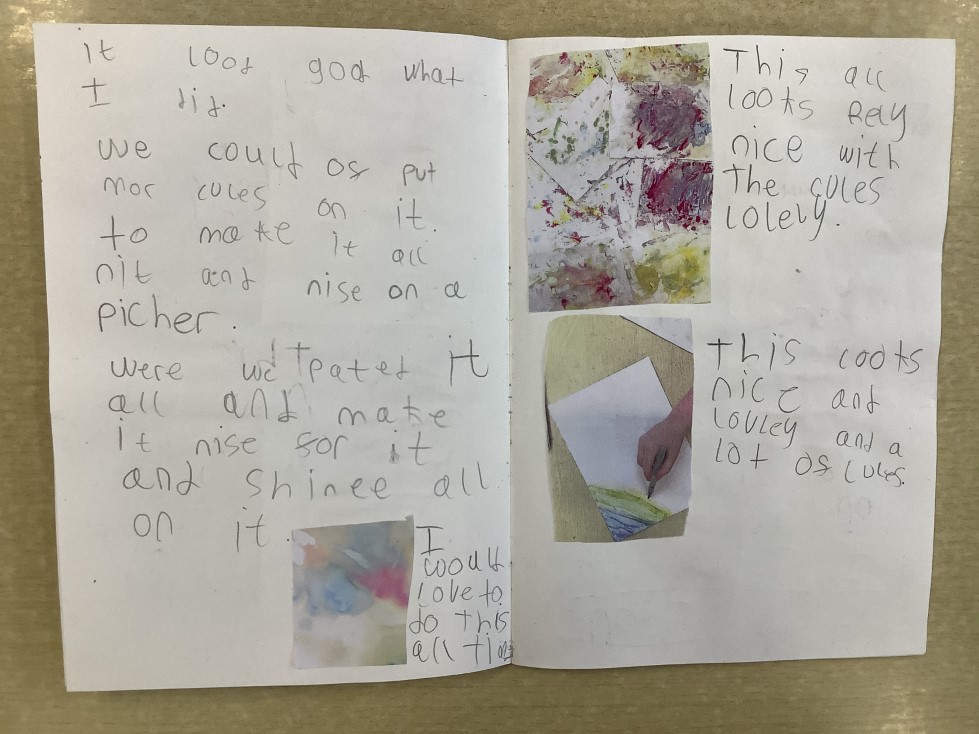 it loot good what
I did.
we could of put
mor cules on it.
to make it all
nit and nise on a
picher.
were we pated it
all and make
it nise for it
and shinee all
on it.
I
would
love to
do this
all
This all
loots Rely
nice with
The cules
lolely.
This loots
nice and
louley and a
lot of cules.